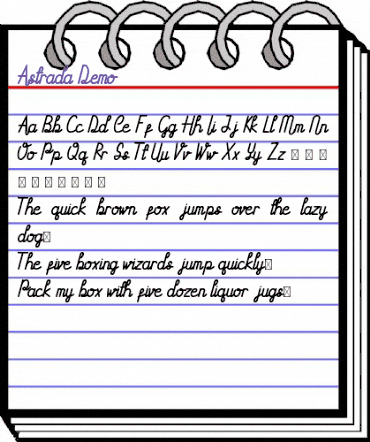 Astrada Demo
Aa Bb Cc Dd Ee Ff Gg Hh Ii Jj Kk Ll Mm Nn
Oo Pp Qq Rr Ss Tt Uu Vv Ww Xx Yy Zz □ □ □
□ □ □ □ □ □ □
The quick brown fox jumps over the lazy
dog□
The five boxing wizards jump quickly□
Pack my box with five dozen liquor jugs□